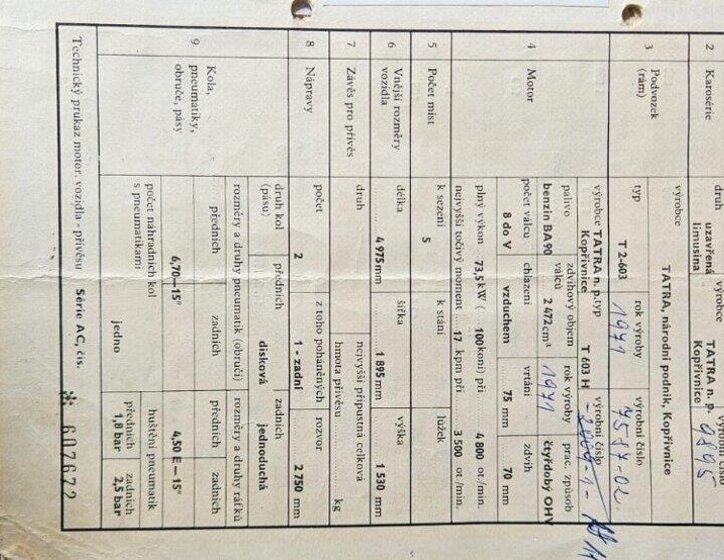 2 Karosérie druh uzavřená limusina výrobce TATRA n. p. Kopřivnice výrobní číslo 9895
3 Podvozek (rám) výrobce TATRA, národní podnik, Kopřivnice
typ T 2-603 rok výroby 1971 výrobní číslo 7587-02
4 Motor výrobce TATRA n. p. Kopřivnice typ T 603 H výrobní číslo
palivo benzin BA 90 zdvihový objem válců 2 472 cm³ rok výroby 1971 prac. způsob čtyřdobý OHV
počet válců 8 do V chlazení vzduchem vrtání 75 mm zdvih 70 mm
plný výkon 73,5 kW ( 100 koní) při 4 800 ot./min.
nejvyšší točivý moment 17 kpm při 3 500 ot./min.
5 Počet míst k sezení 5 k stání lůžek
6 Vnější rozměry vozidla délka 4 975 mm šířka 1 895 mm výška 1 530 mm
7 Závěs pro přívěs druh nejvyšší přípustná celková hmota přívěsu kg
8 Nápravy počet 2 z toho poháněných 1 - zadní rozvor 2 750 mm
9 Kola, pneumatiky, obruče, pásy druh kol (pásu) předních disková zadních jednoduchá
rozměry a druhy pneumatik (obručí) rozměry a druhy ráfků
předních zadních předních zadních
6,70—15" 4,50 E — 15"
počet náhradních kol s pneumatikami jedno huštění pneumatik předních 1,8 bar zadních 2,5 bar
Technický průkaz motor. vozidla - přívěsu Série AC, čís. * 607672